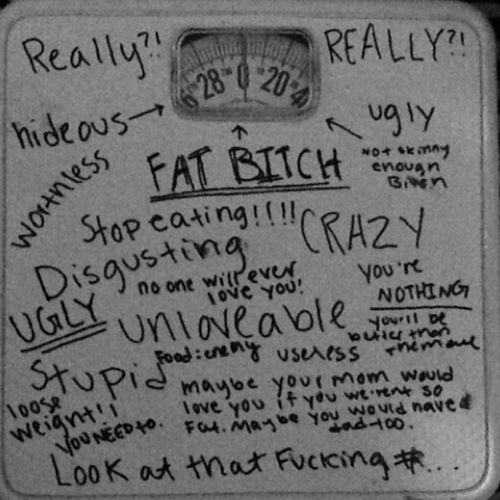 Really?!
REALLY?!
6 28 0 20 4
hideous
ugly
Not skinny
enough
worthless
FAT BITCH
Stop eating!!!!
CRAZY
Disgusting
no one will ever
love you!
you're
NOTHING
UGLY
unloveable
you'll be
better than
them all
Food:enemy
useless
Stupid
maybe your mom would
love you if you we'rent so
Fat. Maybe you would have
dad too.
loose
weight!!
YOU NEED to.
Look at that Fucking #...